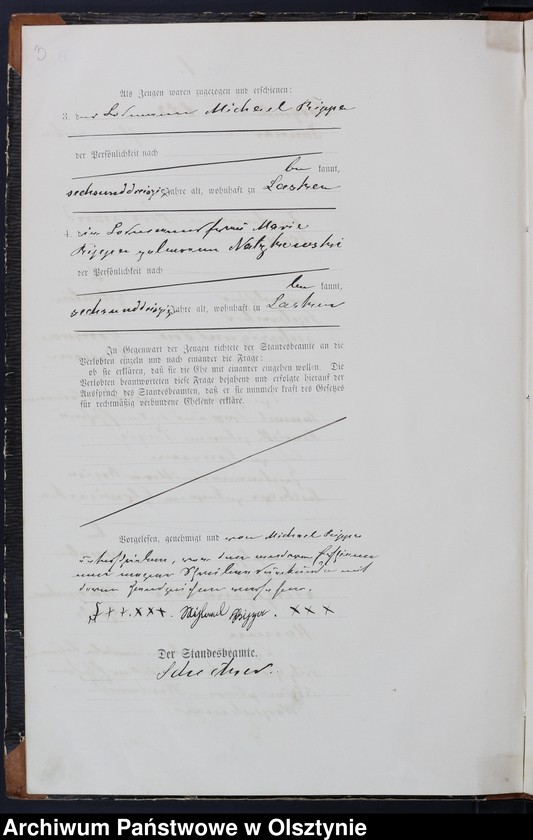 Als Zeugen waren zugezogen und erschienen:
3. der Losmann Michael Rippa
der Persönlichkeit nach
be kannt,
sechsunddreißig Jahre alt, wohnhaft zu Lasken
4. die Losmannsfrau Marie
Rippa geborene Natzkowski
der Persönlichkeit nach
be kannt,
sechsunddreißig Jahre alt, wohnhaft zu Lasken
In Gegenwart der Zeugen richtete der Standesbeamte an die
Verlobten einzeln und nach einander die Frage:
ob sie erklären, daß sie die Ehe mit einander eingehen wollen. Die
Verlobten beantworteten diese Frage bejahend und erfolgte hierauf der
Ausspruch des Standesbeamten, daß er sie nunmehr kraft des Gesetzes
für rechtmäßig verbundene Eheleute erkläre.
Vorgelesen, genehmigt und von Michael Rippa
unterschrieben, von den anderen Personen
wegen Schreibensunkunde mit
Handzeichen versehen.
+++. xxx. Michael Rippa. xxx
Der Standesbeamte.
Archiwum Państwowe w Olsztynie